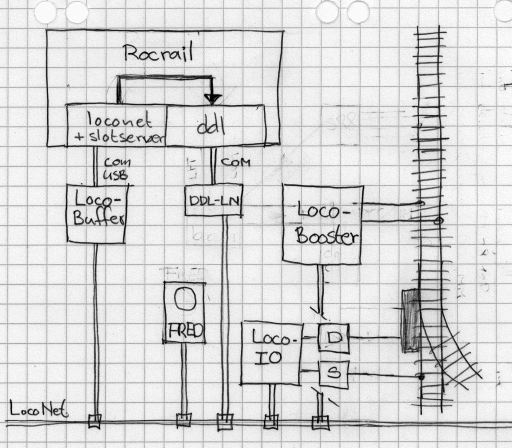 Rocrail
loconet
+ slotserver
ddl
com
USB
COM
Loco-
Buffer
DDL-LN
Loco-
Booster
FRED
Loco-
IO
D
S
LocoNet